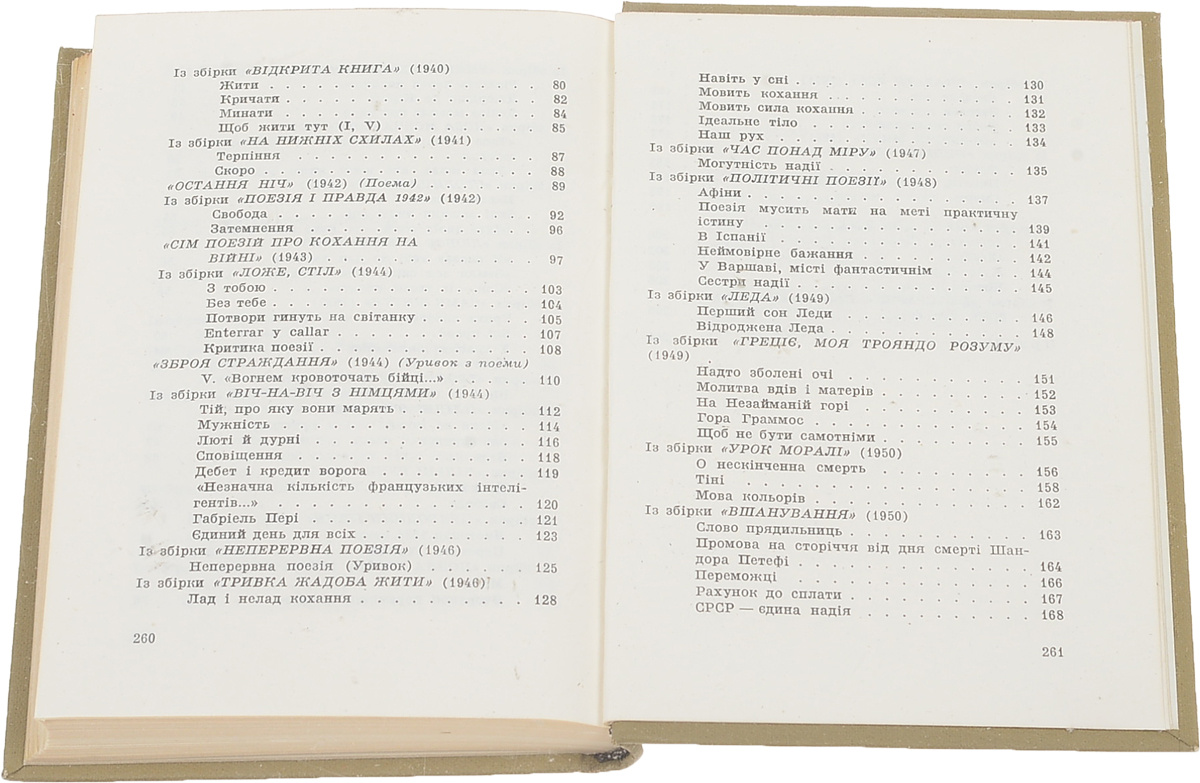 Із збірки «ВІДКРИТА КНИГА» (1940)
Жити . . . . . . . . . . . . . . . . 80
Кричати . . . . . . . . . . . . . . . 82
Минати . . . . . . . . . . . . . . . 84
Щоб жити тут (І, V) . . . . . . . . . 85
Із збірки «НА НИЖНІХ СХИЛАХ» (1941)
Терпіння . . . . . . . . . . . . . . 87
Скоро . . . . . . . . . . . . . . . 88
«ОСТАННЯ НІЧ» (1942) (Поема) . . . . . . . 89
Із збірки «ПОЕЗІЯ І ПРАВДА 1942» (1942)
Свобода . . . . . . . . . . . . . . 92
Затемнення . . . . . . . . . . . . . 96
«СІМ ПОЕЗІЙ ПРО КОХАННЯ НА
ВІЙНІ» (1943) . . . . . . . . . . . . 97
Із збірки «ЛОЖЕ, СТІЛ» (1944)
З тобою . . . . . . . . . . . . . . 103
Без тебе . . . . . . . . . . . . . . 104
Потвори гинуть на світанку . . . . . . 105
Enterrar y callar . . . . . . . . . . 107
Критика поезії . . . . . . . . . . . 108
«ЗБРОЯ СТРАЖДАННЯ» (1944) (Уривок з поеми)
V. «Вогнем кровоточать бійці...» . . . . . 110
Із збірки «ВІЧ-НА-ВІЧ З НІМЦЯМИ» (1944)
Тій, про яку вони марять . . . . . . . . 112
Мужність . . . . . . . . . . . . . . 114
Люті й дурні . . . . . . . . . . . . 116
Сповіщення . . . . . . . . . . . . . 118
Дебет і кредит ворога . . . . . . . . . 119
«Незначна кількість французьких інтелі-
гентів...» . . . . . . . . . . . . . . 120
Габріель Пері . . . . . . . . . . . . 121
Єдиний день для всіх . . . . . . . . . 123
Із збірки «НЕПЕРЕРВНА ПОЕЗІЯ» (1946)
Неперервна поезія (Уривок) . . . . . . . 125
Із збірки «ТРИВКА ЖАДОБА ЖИТИ» (1946)
Лад і нелад кохання . . . . . . . . . . 128
260
Навіть у сні . . . . . . . . . . . . . 130
Мовить кохання . . . . . . . . . . . . 131
Мовить сила кохання . . . . . . . . . . 132
Ідеальне тіло . . . . . . . . . . . . 133
Наш рух . . . . . . . . . . . . . . 134
Із збірки «ЧАС ПОНАД МІРУ» (1947)
Могутність надії . . . . . . . . . . . 135
Із збірки «ПОЛІТИЧНІ ПОЕЗІЇ» (1948)
Афіни . . . . . . . . . . . . . . . 137
Поезія мусить мати на меті практичну
істину . . . . . . . . . . . . . . . 139
В Іспанії . . . . . . . . . . . . . . 141
Неймовірне бажання . . . . . . . . . . 142
У Варшаві, місті фантастичнім . . . . . . 144
Сестри надії . . . . . . . . . . . . . 145
Із збірки «ЛЕДА» (1949)
Перший сон Леди . . . . . . . . . . . 146
Відроджена Леда . . . . . . . . . . . 148
Із збірки «ГРЕЦІЄ, МОЯ ТРОЯНДО РОЗУМУ»
(1949) .
Надто зболені очі . . . . . . . . . . . 151
Молитва вдів і матерів . . . . . . . . . 152
На Незайманій горі . . . . . . . . . . 153
Гора Граммос . . . . . . . . . . . . 154
Щоб не бути самотніми . . . . . . . . . 155
Із збірки «УРОК МОРАЛІ» (1950)
О нескінченна смерть . . . . . . . . . 156
Тіні . . . . . . . . . . . . . . . . 158
Мова кольорів . . . . . . . . . . . . 162
Із збірки «ВШАНУВАННЯ» (1950)
Слово прядильниць . . . . . . . . . . 163
Промова на сторіччя від дня смерті Шан-
дора Петефі . . . . . . . . . . . . . 164
Переможці . . . . . . . . . . . . . 166
Рахунок до сплати . . . . . . . . . . . 167
СРСР — єдина надія . . . . . . . . . . 168
261